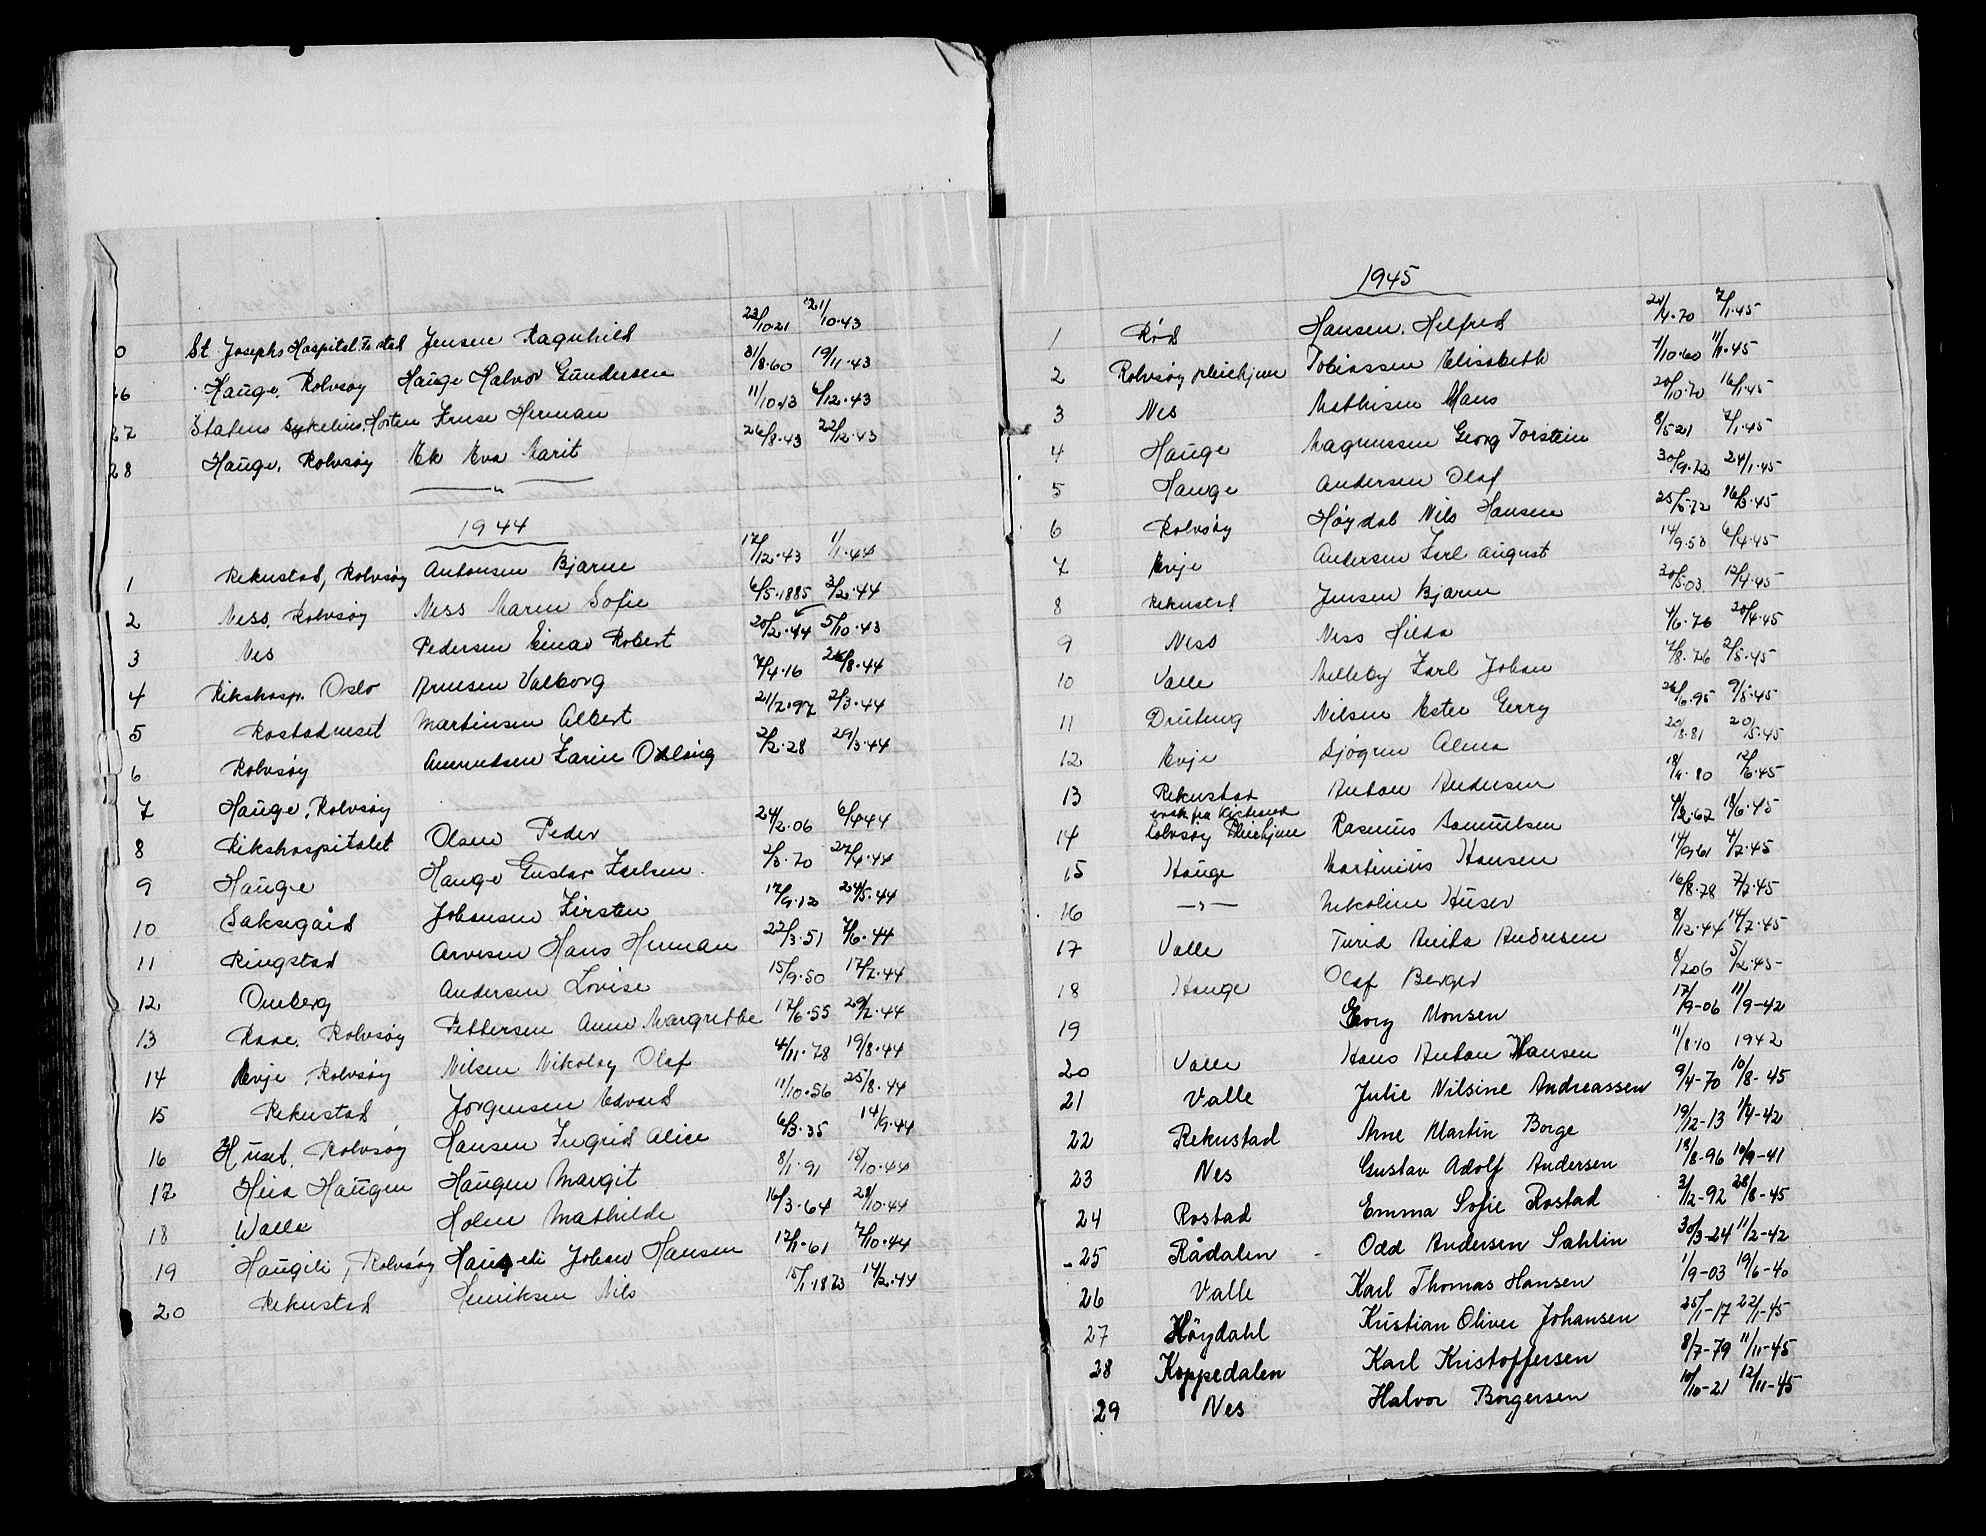 St. Josephs Hospital Fr.stad Jensen Ragnhild 23/10.21 21/10.43
26 Hauge, Rolvsøy Hauge Halvor Gundersen 31/8.60 19/11.43
27 Statens sykehus, Horten Herman 11/10.13 6/12.43
28 Hauge, Rolvsøy Ek Eva Marit 26/8.43 22/12.43
— " —
1944
1 Rekustad, Rolvsøy Antonsen Bjarne 17/12.43 1/1.44
2 Ness, Rolvsøy Ness Maren Sofie 6/5.1885 3/2.44
3 Nes Pedersen Einar Robert 20/2.44 5/10.43
4 Rikshosp. Oslo Arnesen Valborg 7/4.16 26/8.44
5 Rostadneset Martinsen Albert 21/7.97 2/3.44
6 Rolvsøy Amundsen Karin Oslaug 2/2.28 29/3.44
7 Hauge, Rolvsøy
8 Rikshospitalet Olsen Peder 24/2.06 6/4 44
9 Hauge Hauge Gustav Karlsen. 2/3.70 27/4.44
10 Saksegård Johansen Kirsten 17/9.12 24/5.44
11 Ringstad Arvesen Hans Herman 22/3.51 7/6.44
12 Omberg Andersen Lovise 15/9.50 17/7.44
13 Raae, Rolvsøy Pettersen Anne Margrethe 17/6.55 29/7.44
14 Evje, Rolvsøy Nilsen Nikolay Olaf 4/11.78 19/8.44
15 Rekustad Jørgensen Edvard 11/10.56 25/8.44
16 Huset, Rolvsøy Hansen Ingrid Alice 6/3.35 14/9.44
17 Heia Haugen Haugen Margit 8/1.91 15/10.44
18 Walle Holm Mathilde 16/3.64 28/10.44
19 Haugili, Rolvsøy Haugeli Johan Hansen 12/1.61 7/10.44
20 Rekustad Henriksen Nils 15/1.1873 14/2.44
1945
1 Rød Hansen, Helfred 24/4.70 7/1.45
2 Rolvsøy pleiehjem Tobiassen Elisabeth 7/10.60 11/1.45
3 Nes Mathisen Hans 20/10.70 16/1.45
4 Hauge Magnussen Georg Torstein 8/5 21 7/1.45
5 Hauge Andersen Olaf 30/9.72 24/1.45
6 Rolvsøy Høydal Nils Hansen 25/5.72 16/3.45
7 Evje Andersen Karl August 14/9.58 6/4.45
8 Rekustad Jensen Bjarne 30/5.03 12/4.45
9 Ness Ness Hilda 4/6.76 20/4.45
10 Valle Melleby Karl Johan 7/8.76 2/5.45
11 Nilsen Ester Gerry 26/6.95 9/5.45
12 Evje Sjøgren Alma 20/8.81 20/5.45
13 Rekustad Anton Andersen 18/4.80 12/6.45
14 Rolvsøy Pleiehjem Rasmus Samuelsen 4/2.62 18/6.45
15 Hauge Martinius Hansen 14/9 61 4/7.45
16 — " — Nikoline Huser 16/8.78 7/7.45
17 Valle Turid Anita Andresen 8/12.44 14/7.45
18 Hauge Olaf Berger 8/2 06 5/2.45
19 Georg Monsen 17/9-06 11/9-42
20 Valle Hans Anton Hansen 11/8.10 1942
21 Valle Julie Nilsine Andreassen 9/4-70 10/8-45
22 Rekustad Arne Martin Borge 19/12-13 1/4-42
23 Nes Gustav Adolf Andersen 18/8-96 10/9-41
24 Rostad Emma Sofie Rostad 3/12-92 28/8-45
25 Rådalen - Odd Andersen Sahlin 30/3-24 11/2-42
26 Valle Karl Thomas Hansen 1/9-03 19/6-40
27 Høydahl Kristian Oliver Johansen 25/1-17 22/1-45
28 Koppedalen Karl Kristoffersen 8/7-79 11/11-45
29 Nes Halvor Borgersen 10/10-21 12/11-45